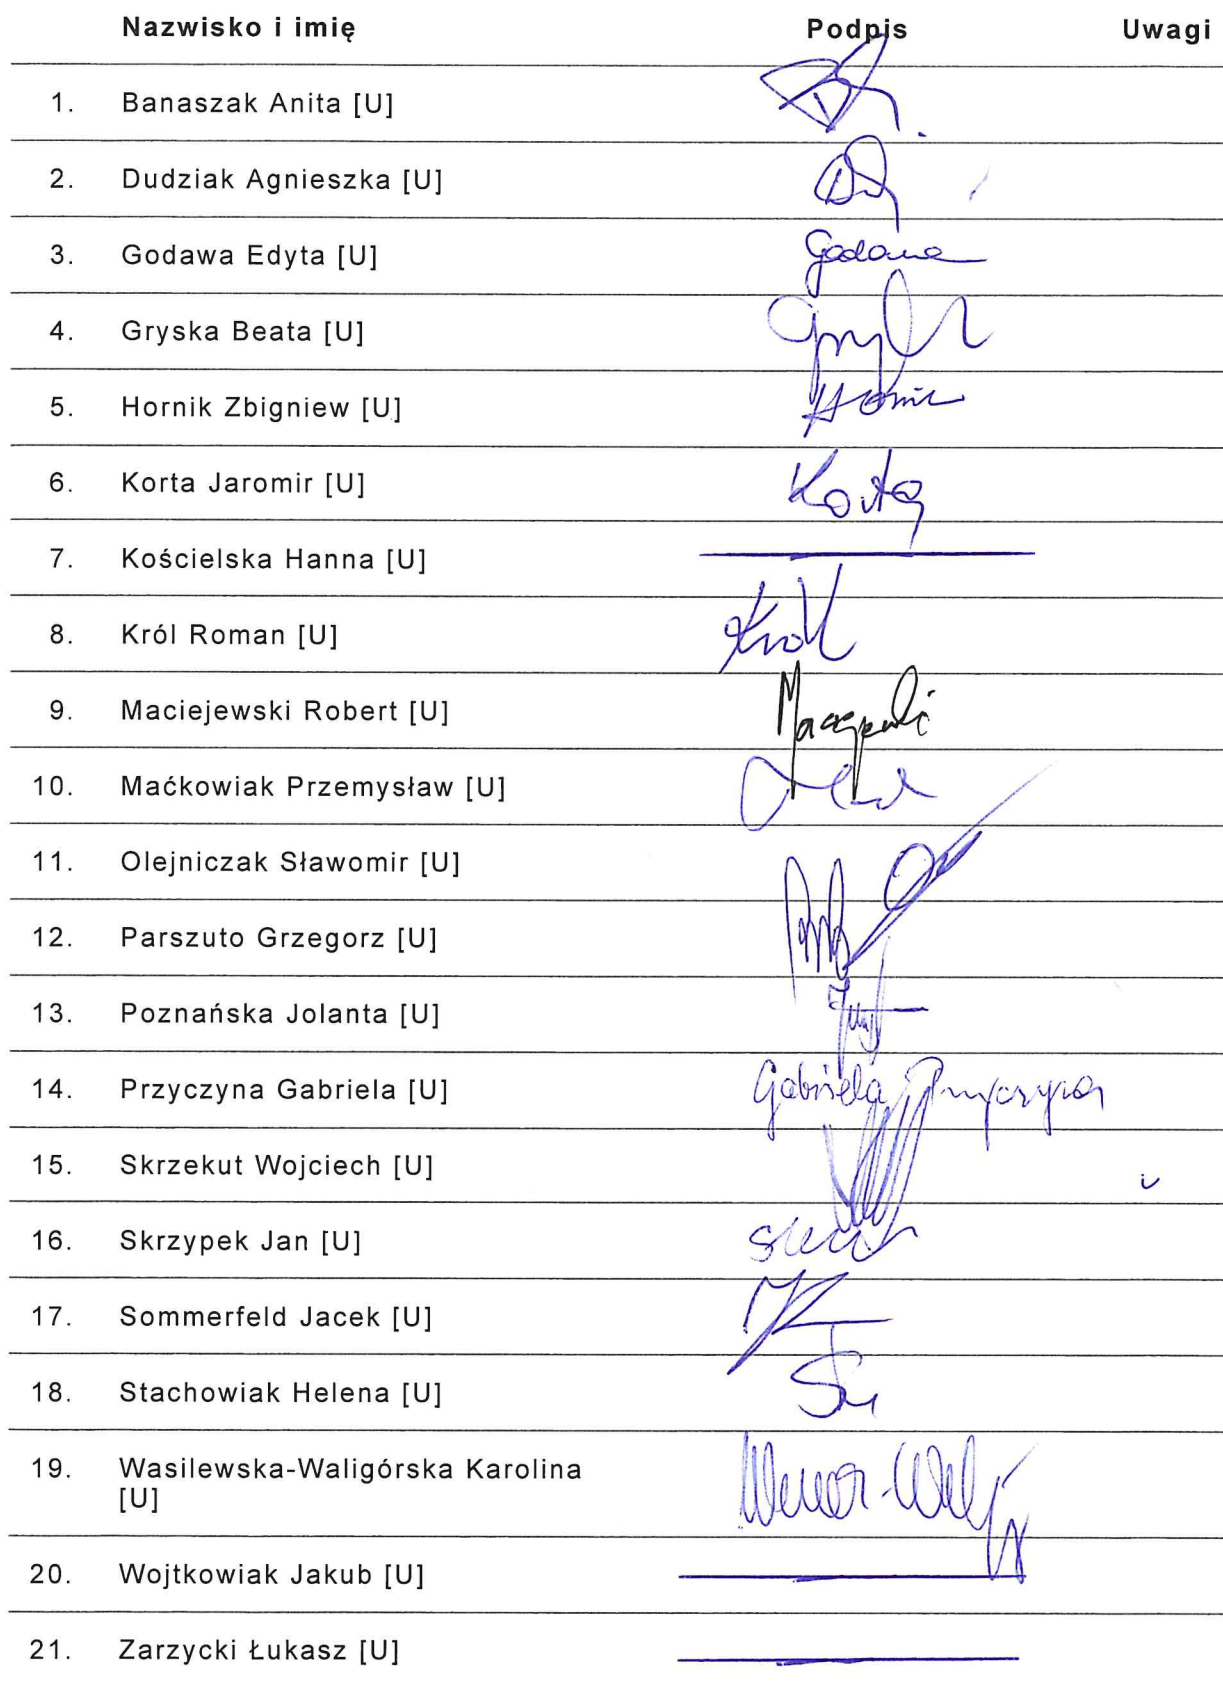 Nazwisko i imię Podpis Uwagi
1. Banaszak Anita [U]
2. Dudziak Agnieszka [U]
3. Godawa Edyta [U] Godawa
4. Gryska Beata [U]
5. Hornik Zbigniew [U]
6. Korta Jaromir [U] Korta
7. Kościelska Hanna [U]
8. Król Roman [U] Król
9. Maciejewski Robert [U]
10. Maćkowiak Przemysław [U]
11. Olejniczak Sławomir [U]
12. Parszuto Grzegorz [U]
13. Poznańska Jolanta [U]
14. Przyczyna Gabriela [U] Gabriela Przyczyna
15. Skrzekut Wojciech [U]
16. Skrzypek Jan [U]
17. Sommerfeld Jacek [U]
18. Stachowiak Helena [U]
19. Wasilewska-Waligórska Karolina
[U]
20. Wojtkowiak Jakub [U]
21. Zarzycki Łukasz [U]